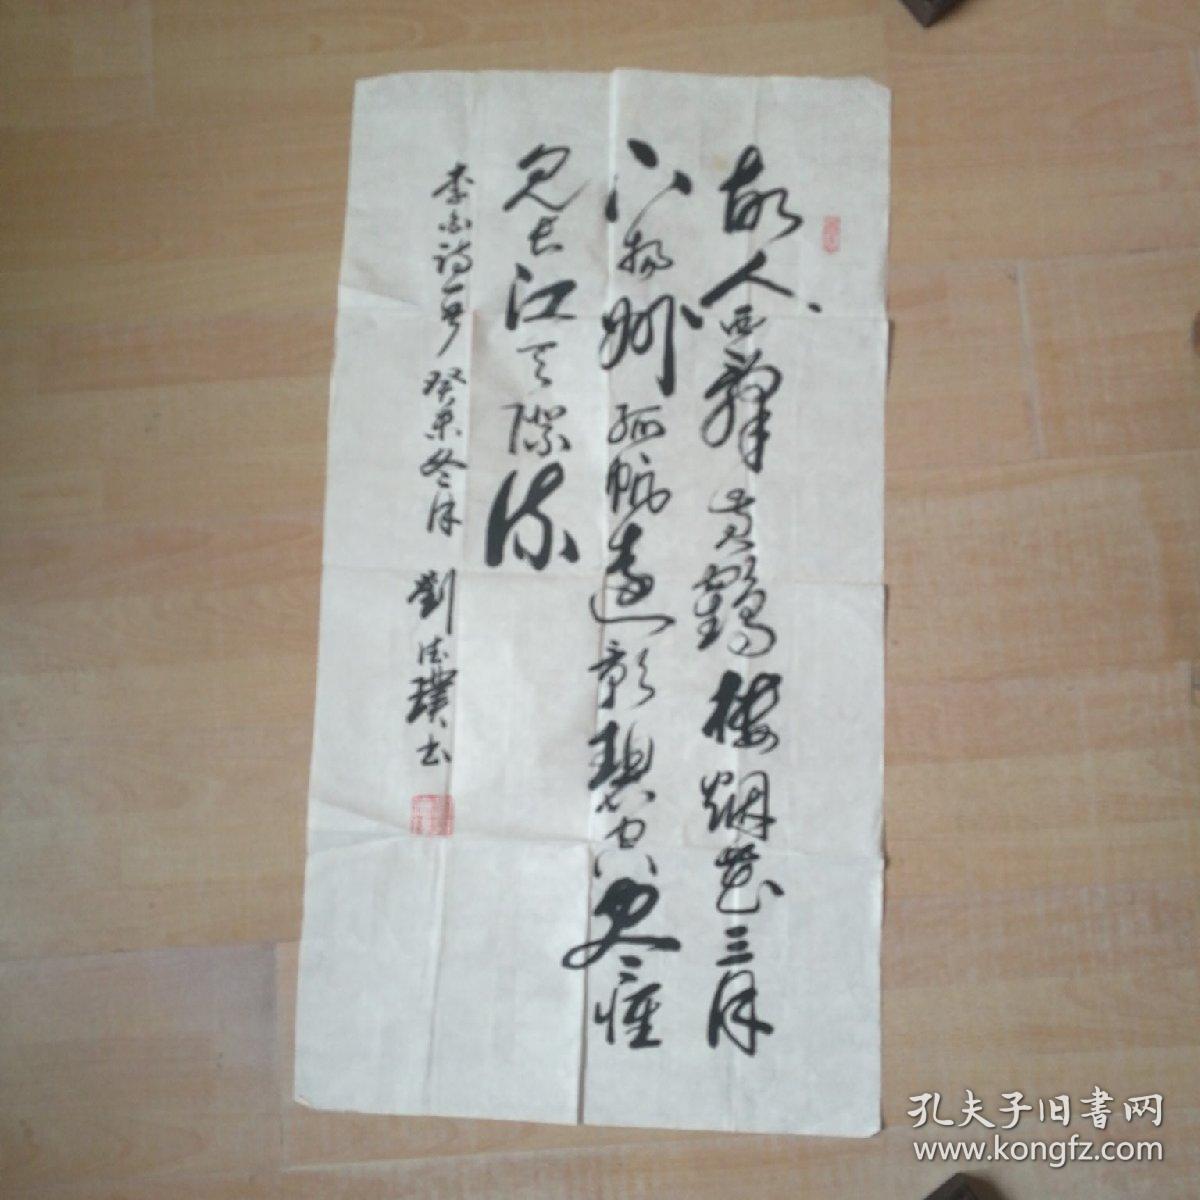 故人西辭黃鶴樓烟花三月
下揚州孤帆遠影碧空盡惟
見長江天際流
李白詩一首 癸未冬月 劉德璞书
孔夫子旧書网
www.kongfz.com